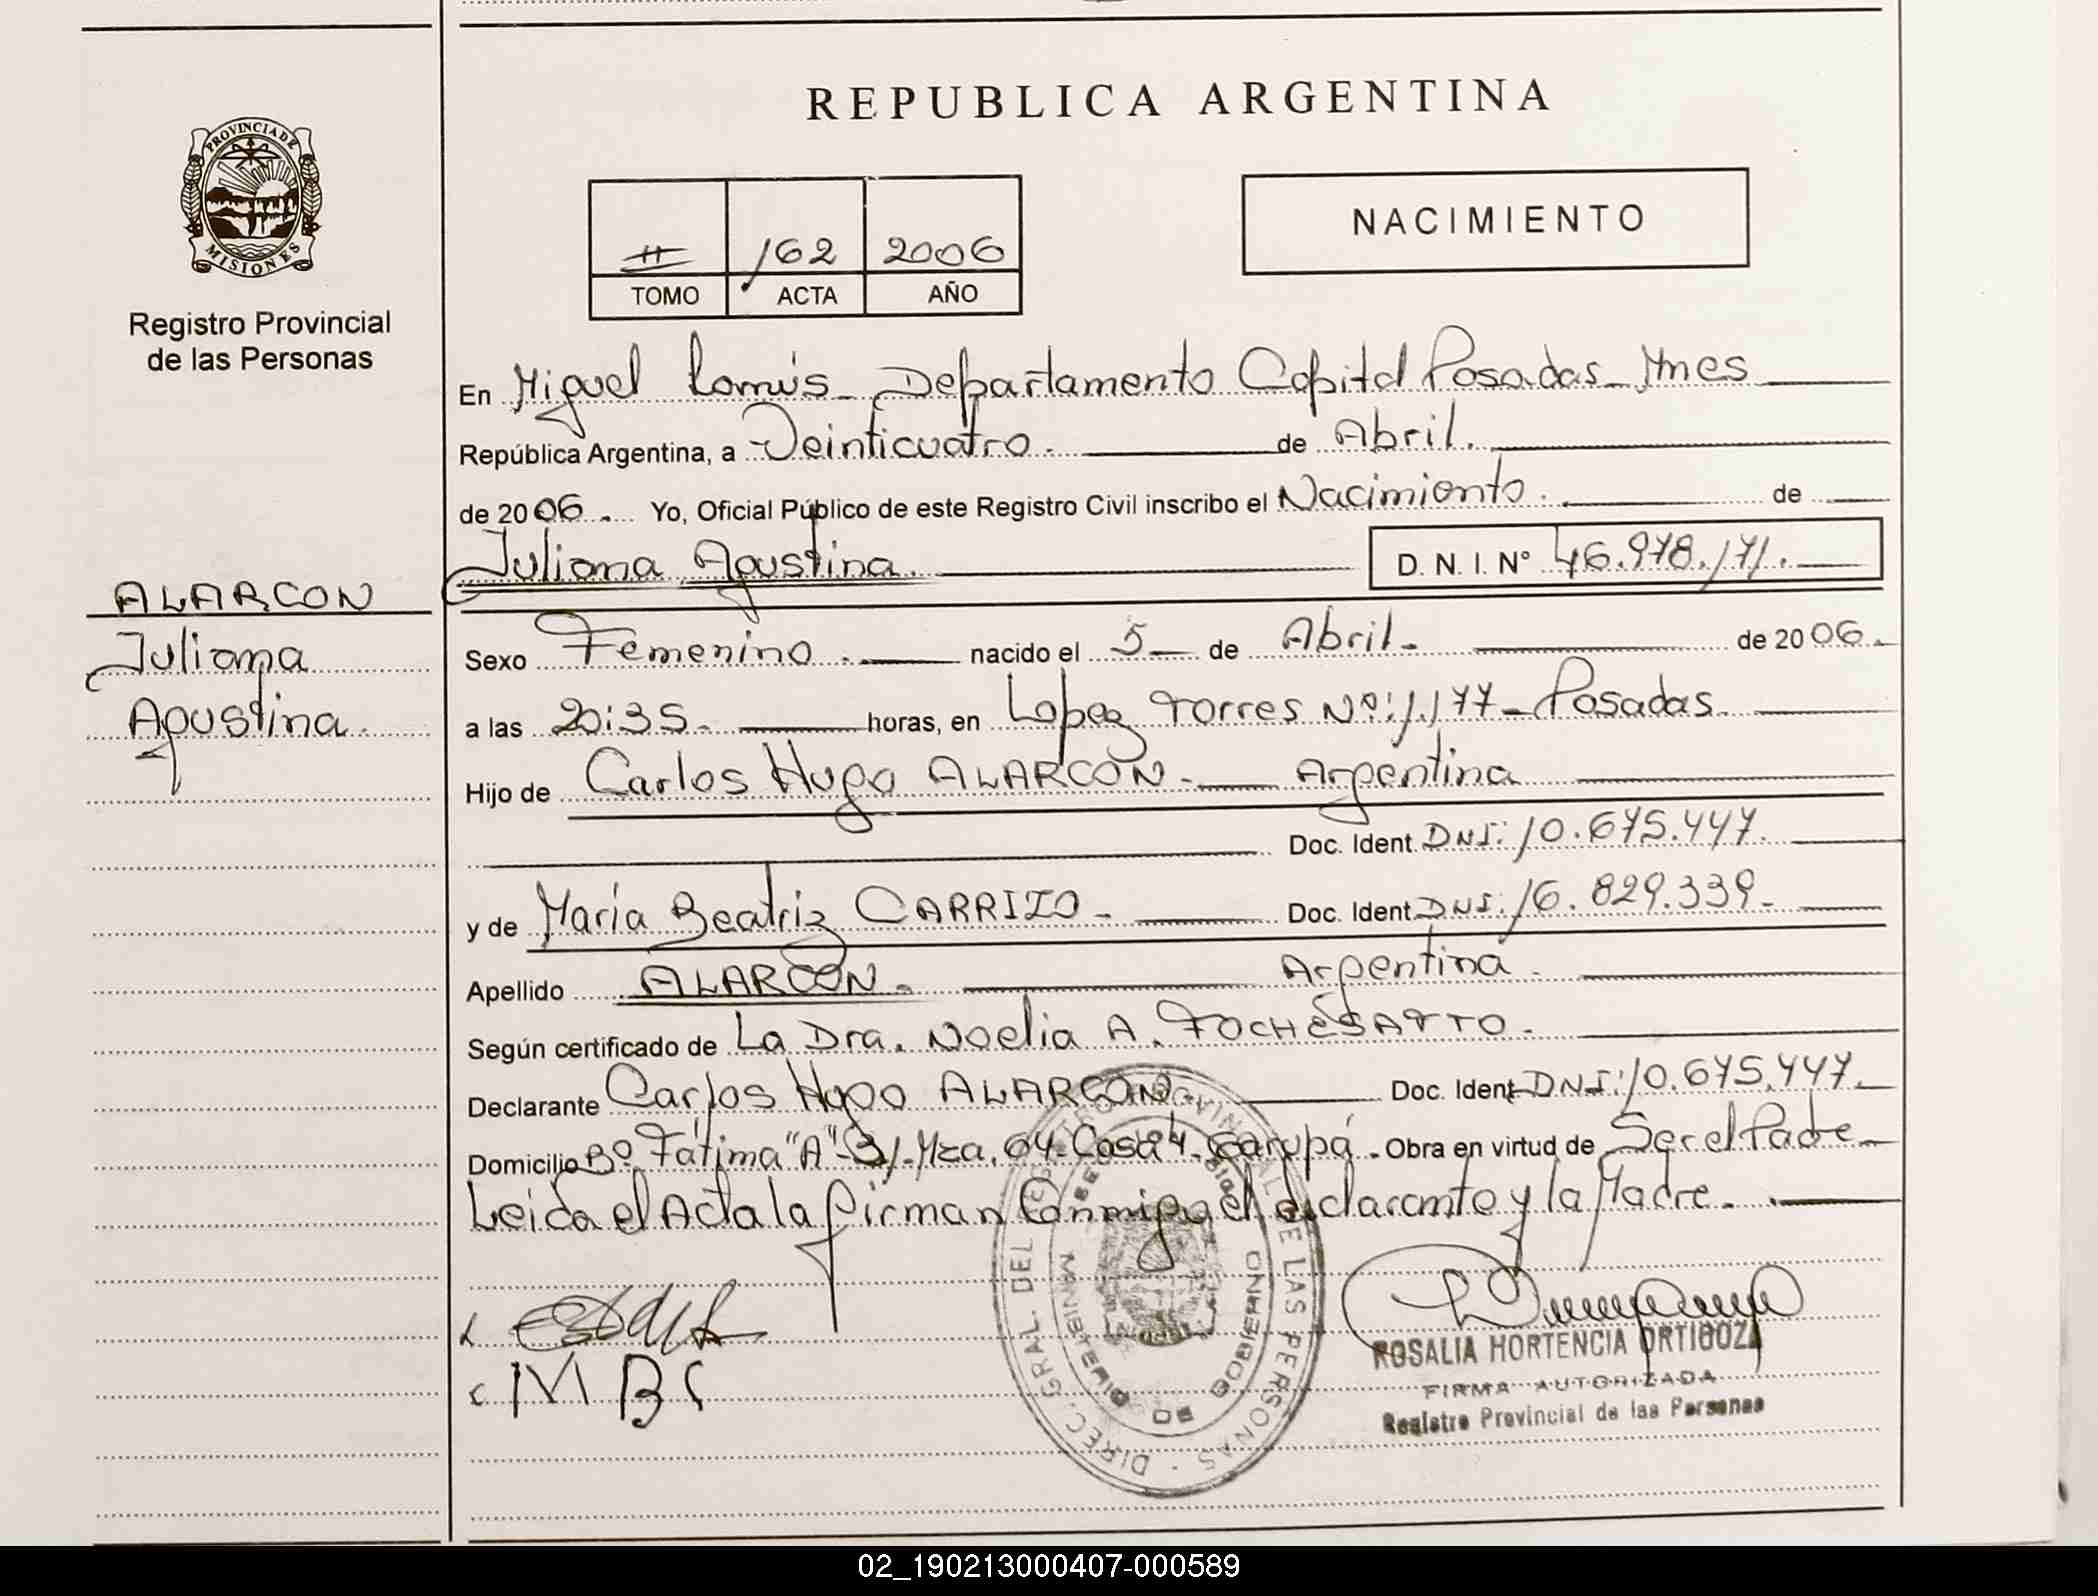 REPUBLICA ARGENTINA
PROVINCIA DE
MISIONES
Registro Provincial
de las Personas
162 2006
TOMO ACTA AÑO
NACIMIENTO
En Miguel Lanús - Departamento Capital Posadas - Mnes
República Argentina, a Veinticuatro. de Abril.
de 2006. Yo, Oficial Público de este Registro Civil inscribo el Nacimiento. de
Juliana Agustina. D. N. I. Nº 46.978.171.
ALARCON
Juliana
Agustina.
Sexo Femenino. nacido el 5 de Abril. de 2006.
a las 20:35. horas, en Lopez Torres Nº: 1.177 - Posadas.
Hijo de Carlos Hugo ALARCON. Argentina
Doc. Ident. DNI: 10.675.447.
y de María Beatriz CARRIZO - Doc. Ident. DNI: 16.829.339.
Apellido ALARCON. Argentina.
Según certificado de La Dra. Noelia A. TOCHESATTO.
Declarante Carlos Hugo ALARCON - Doc. Ident. DNI: 10.675.447.
Domicilio Bº Fátima "A" Mza. 04 - Casa 4. Garupá. Obra en virtud de Ser el Padre
Leida el Acta la firman Conmigo el declarante y la Madre.
MBC
DIREC. GRAL. DEL REGISTRO PROVINCIAL DE LAS PERSONAS
MINISTERIO DE GOBIERNO
ROSALIA HORTENCIA ORTIGOZA
FIRMA AUTORIZADA
Registro Provincial de las Personas
02_190213000407-000589